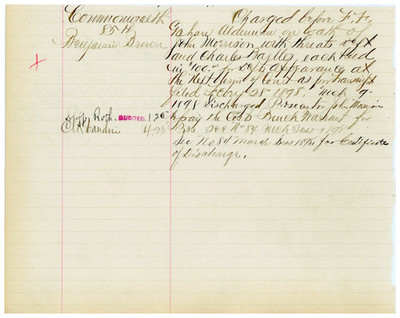 Commonwealth
85 H
Benjamin Brown
Charged before F. F.
Gahan Alderman on Oath of
John Morrison with threats
Said Charles held
in $400.00 for appearance at
the next term of Court as per transcript
filed Feby 28" 1898. Mch 9"
1898 Discharged. Prosecutor John
to pay the Costs Bench Warrant for
Pros. See No 84 Mch Sess 1898
See No 84 March Sess 1898 for Certificate
of Discharge.
Roth. AUDITED. 1.20